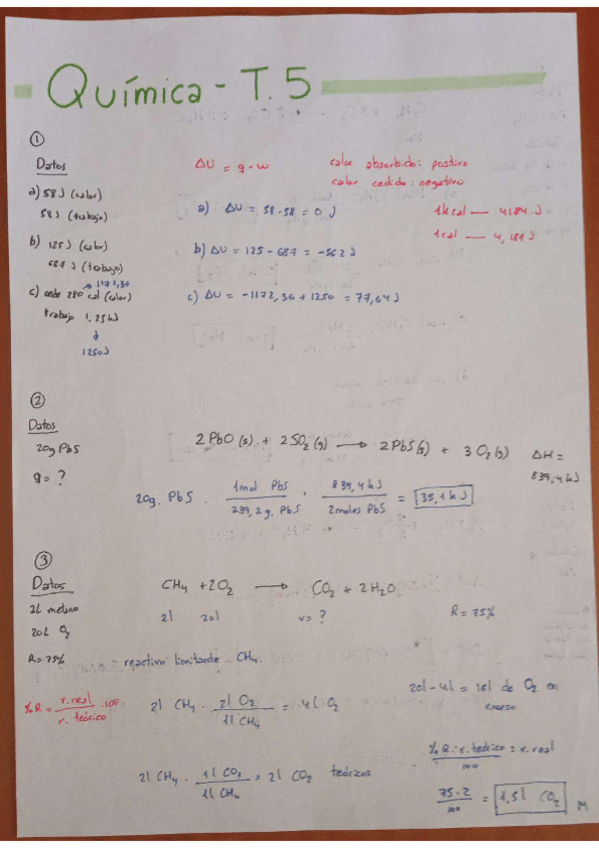 Química - T.5
①
Datos
a) 58 J (calor)
58 J (trabajo)
b) 125 J (calor)
687 J (trabajo)
→ 1172,36
c) cede 280 cal (calor)
trabajo 1,25 kJ
↓
1250 J
ΔU = q - w
calor absorbido: positivo
calor cedido: negativo
1 kcal — 4184 J
1 cal — 4,184 J
a) ΔU = 58 - 58 = 0 J
b) ΔU = 125 - 687 = -562 J
c) ΔU = -1172,36 + 1250 = 77,64 J
②
Datos
20g PbS
q = ?
2 PbO (s) + 2 SO₂ (g) → 2 PbS (s) + 3 O₂ (g)
ΔH =
839,4 kJ
20g. PbS · 1 mol PbS / 239,2 g. PbS · 839,4 kJ / 2 moles PbS = 35,1 kJ
③
Datos
2L metano
20L O₂
R = 75%
CH₄ + 2O₂ → CO₂ + 2H₂O
2l 20l v = ? R = 75%
reactivo limitante CH₄
%R = r. real / r. teórico · 100
2l CH₄ · 2l O₂ / 1l CH₄ = 4l O₂
20l - 4l = 16l de O₂ en
exceso
2l CH₄ · 1l CO₂ / 1l CH₄ = 2l CO₂ teóricos
%R · r. teórico / 100 = r. real
75 · 2 / 100 = 1,5l CO₂